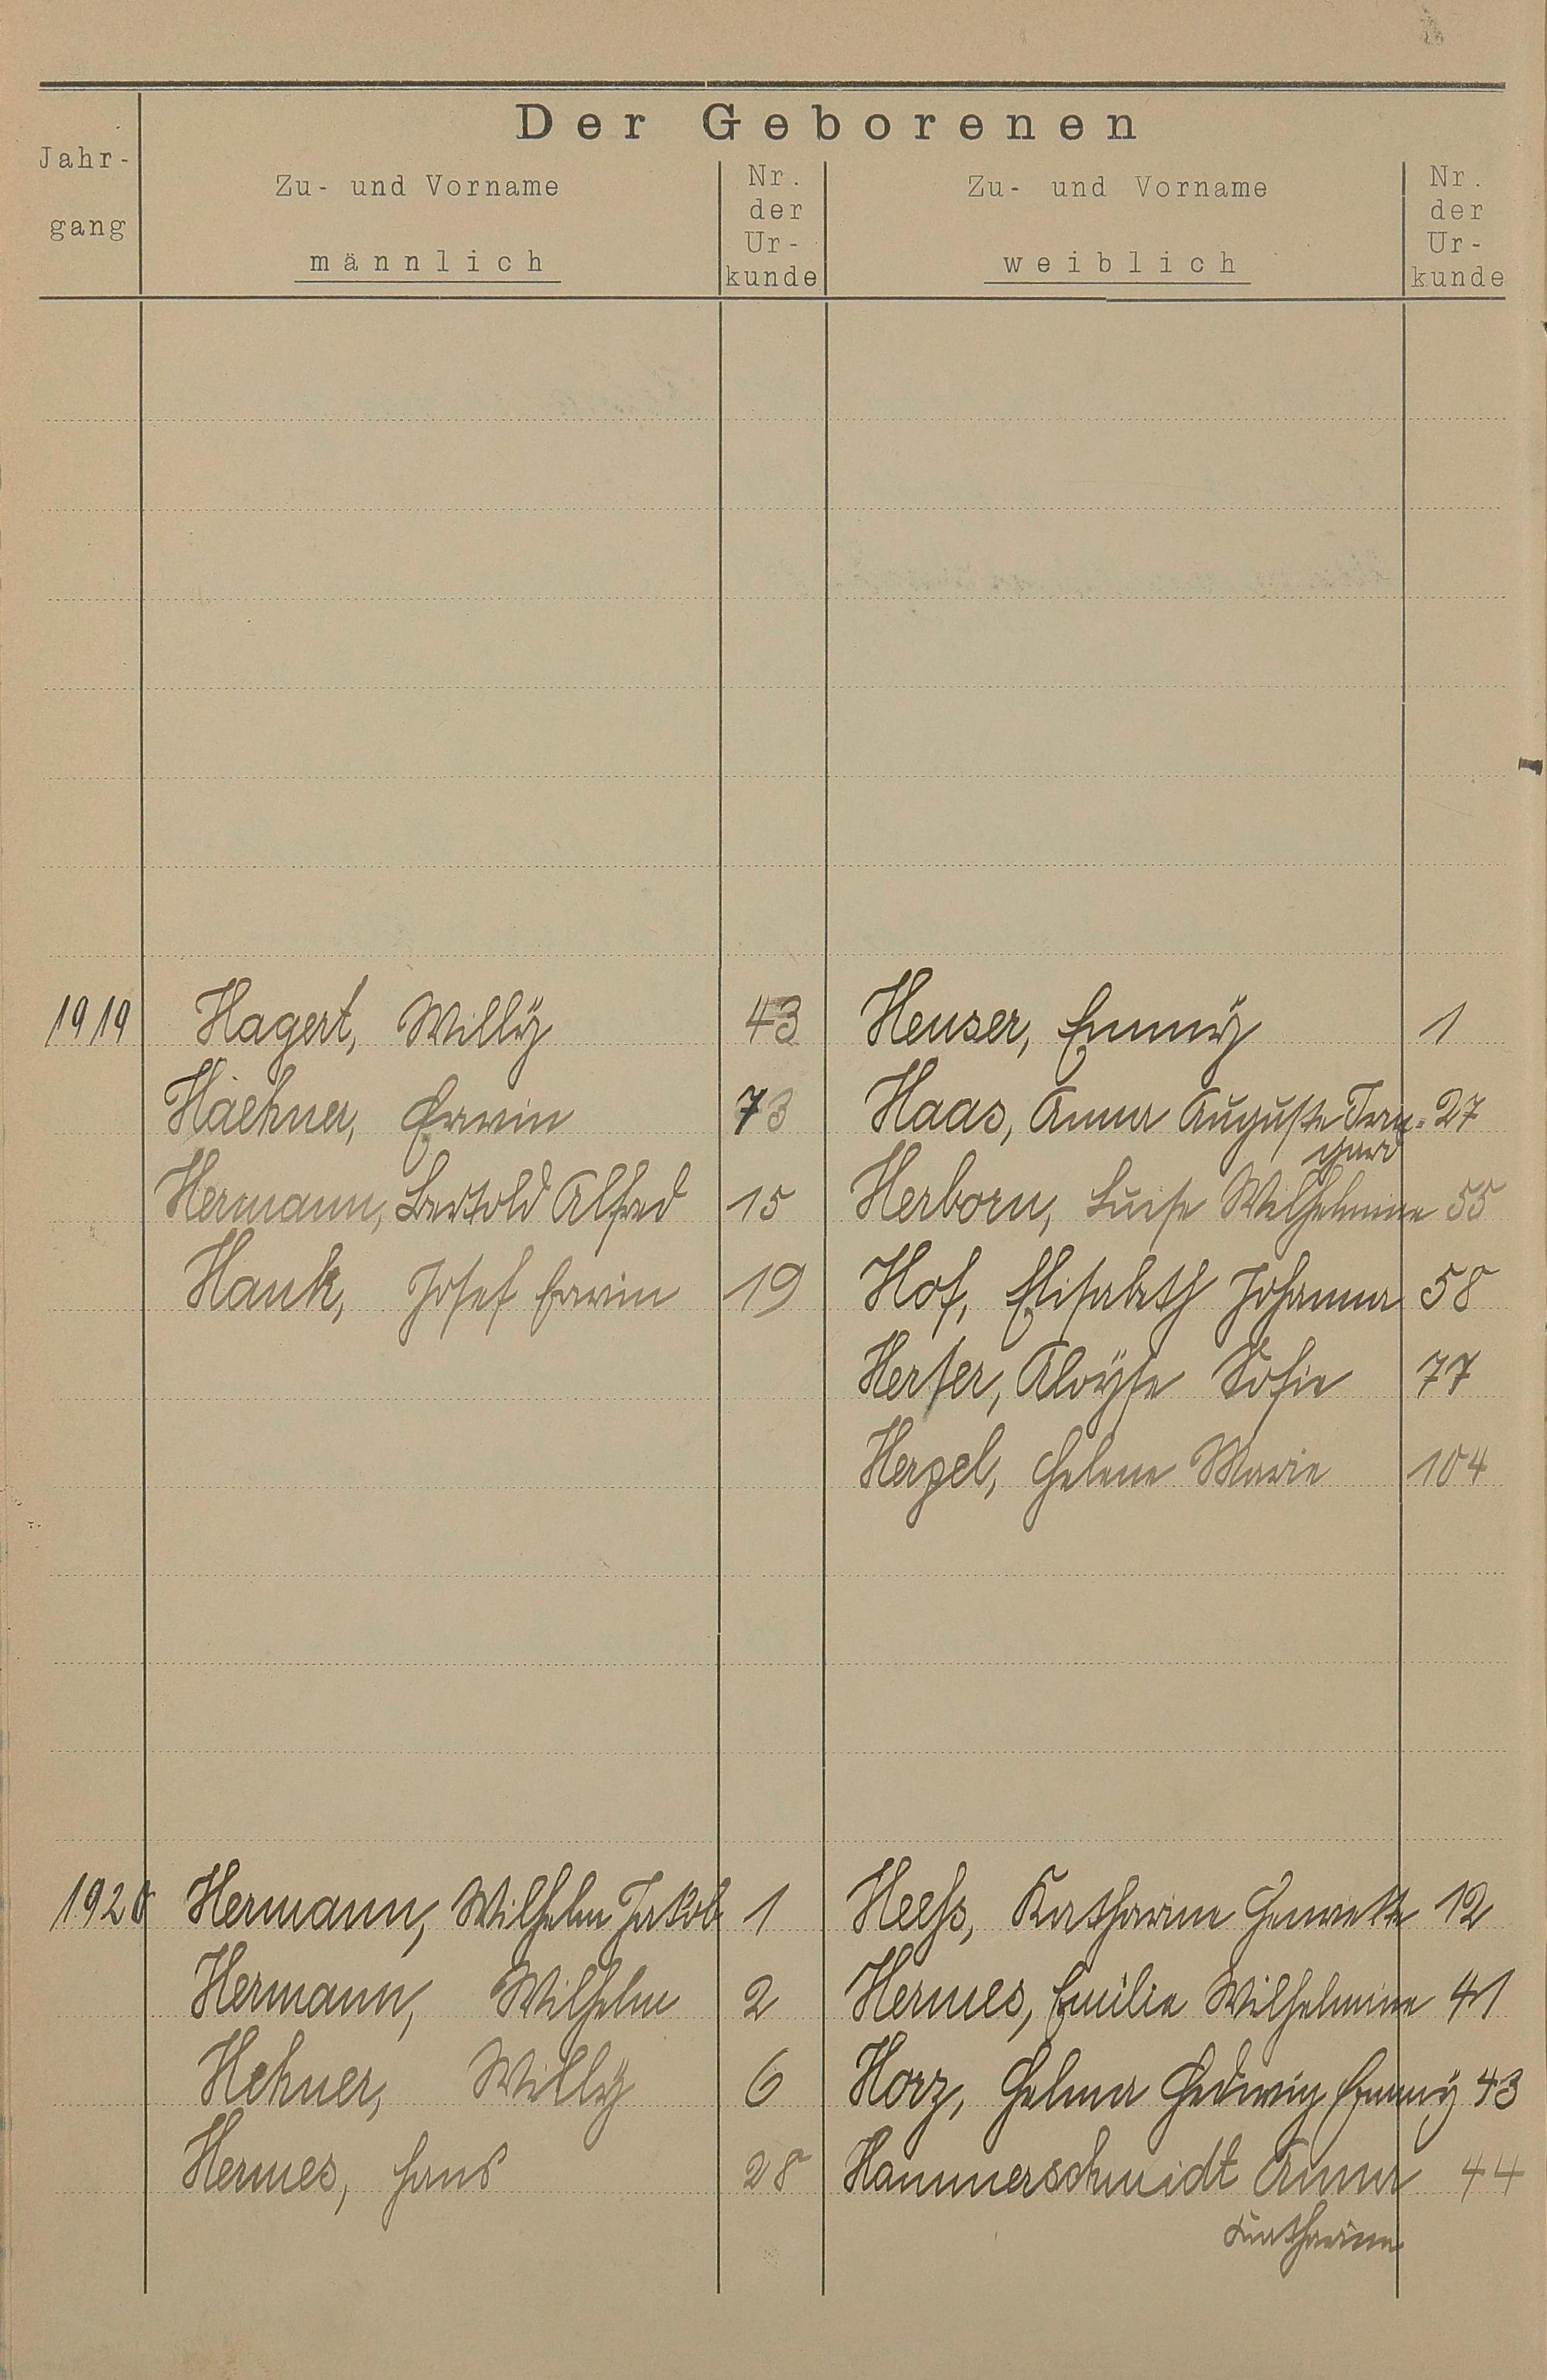 Der Geborenen
Jahr-
gang
Zu- und Vorname
männlich
Nr.
der
Ur-
kunde
Zu- und Vorname
weiblich
Nr.
der
Ur-
kunde
1919 Hagert, Willÿ 43 Heuser, Emmÿ 1
Haehner, Erwin 73 Haas, Anna Auguste Irm- 27
gard
Hermann, Bertold Alfred 15 Herborn, Luise Wilhelmine 55
Hank, Josef Erwin 19 Hof, Elisabeth Johanna 58
Herfer, Aloÿse Sofie 77
Hergel, Helene Marie 104
1920 Hermann, Wilhelm Jakob 1 Heeß, Katharina Henriette 12
Hermann, Wilhelm 2 Hermes, Emilie Wilhelmine 41
Hehner, Willÿ 6 Horz, Helma Hedwig Emmÿ 43
Hermes, Hans 28 Hammerschmidt Anna 44
Katharina